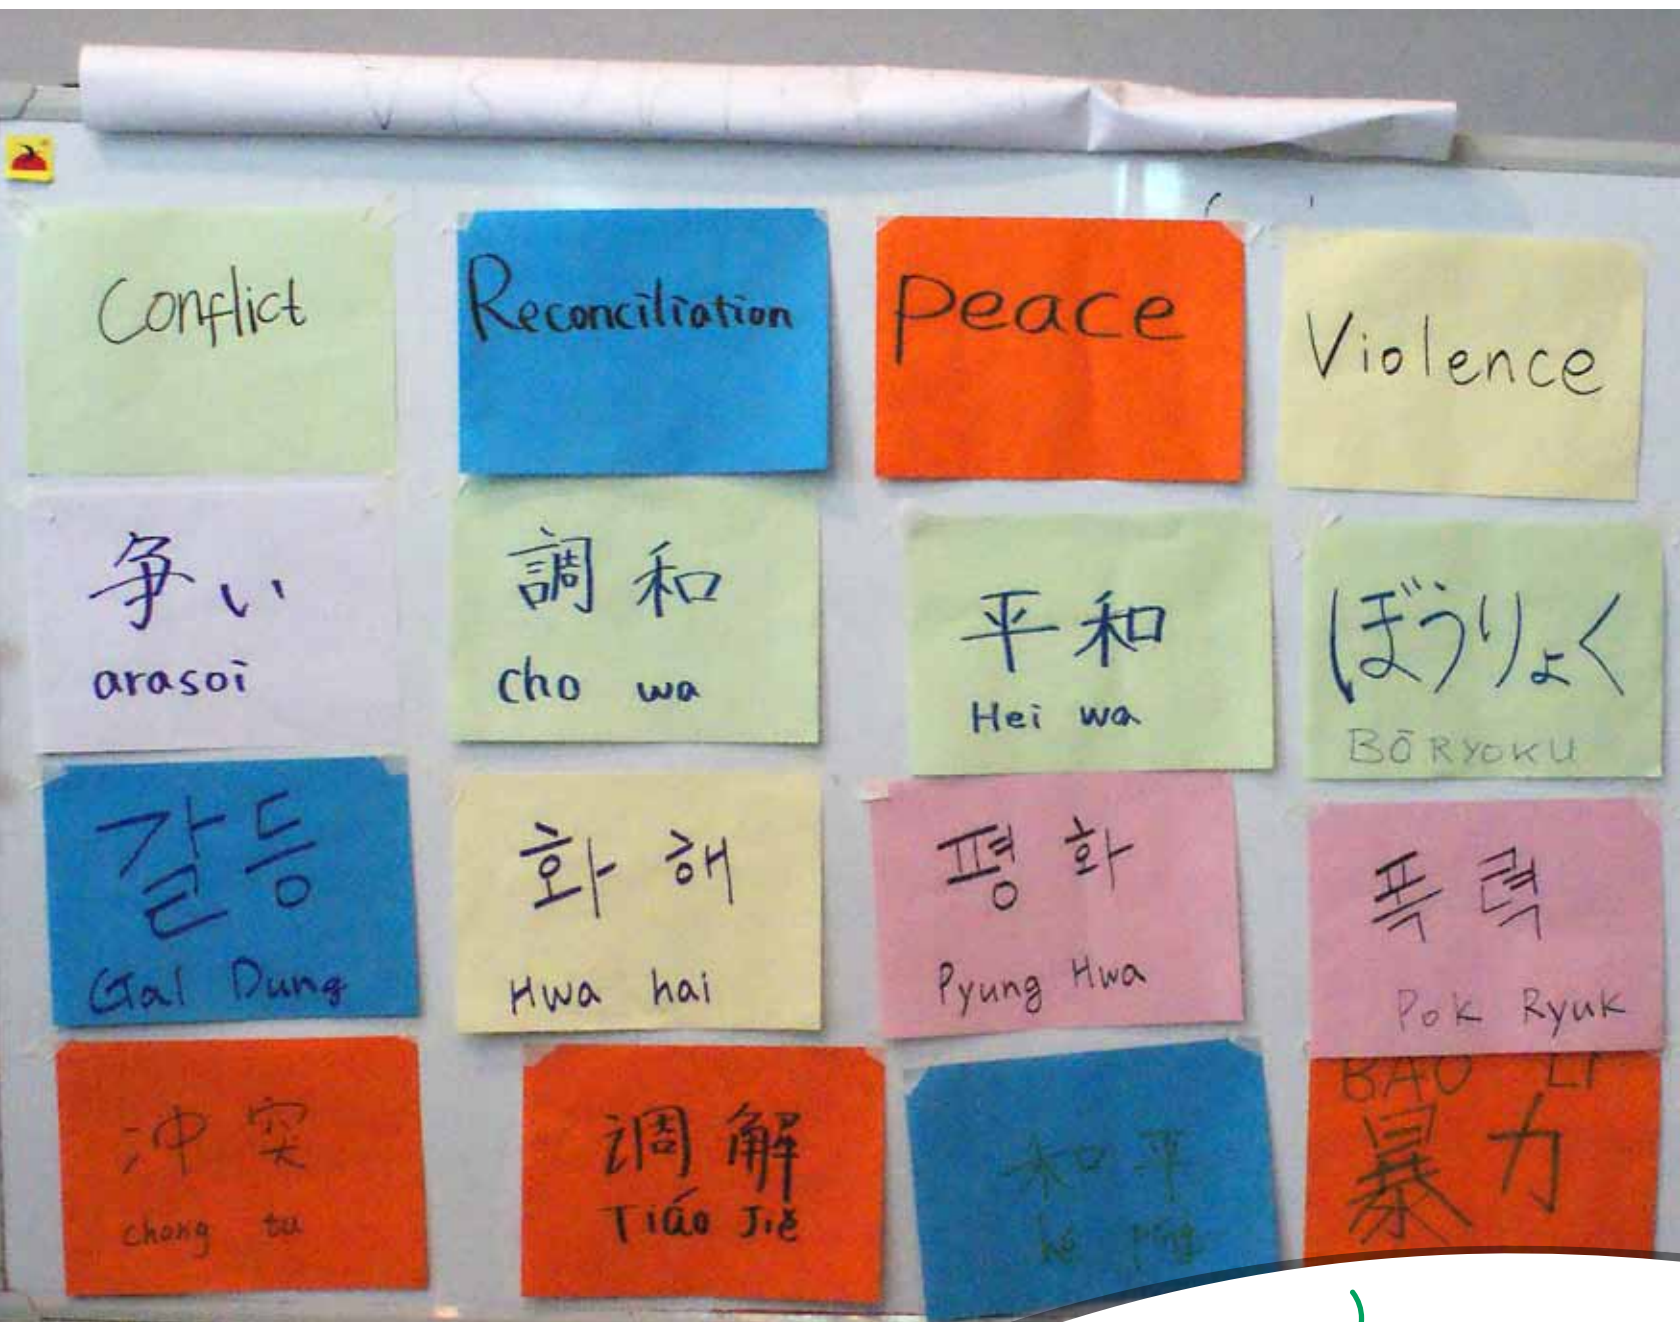 Conflict
Reconciliation
Peace
Violence
争い
arasoi
調和
cho wa
平和
Hei wa
ぼうりょく
BŌRYOKU
갈등
Gal Dung
화해
Hwa hai
평화
Pyung Hwa
폭력
Pok Ryuk
冲突
chong tu
调解
Tiáo Jiě
和平
hé píng
BAO LI
暴力